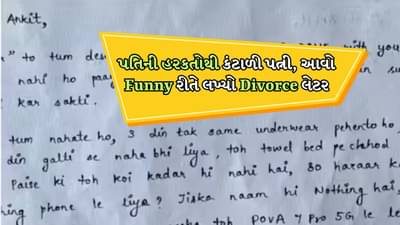 Ankit,
to tum with you
nahi ho
kar sakti.
પતિની હરકતોથી કંટાળી પત્ની, આવો
Funny રીતે લખ્યો Divorce લેટર
tum nahate ho, 3 din tak same underwear pehento ho,
din galti se naha bhi liya, toh towel bed pe chhod
Paise ki toh koi kadar hi nahi hai, 30 hazaar
phone le liya? Jiska naam hi Nothing hai,
toh POVA 7 Pro 5G le